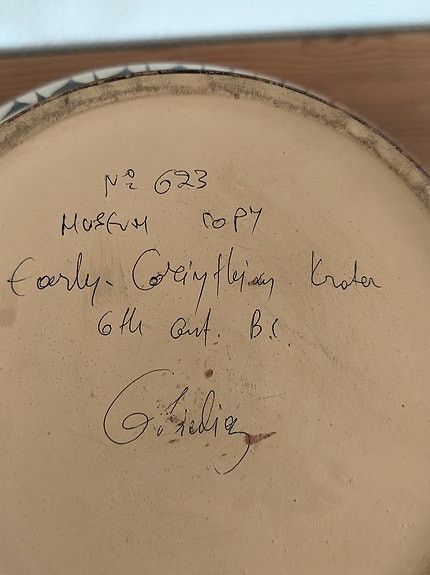 No 623
MUSEUM COPY
Early-Corinthian Krater
6th cent. B.C.